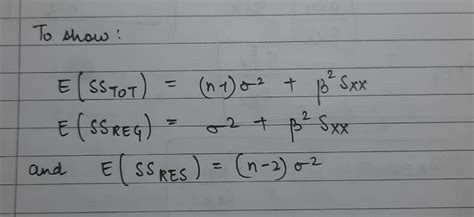 To show:
E(SS_TOT) = (n-1)σ² + β² Sxx
E(SS_REG) = σ² + β² Sxx
and E(SS_RES) = (n-2)σ²